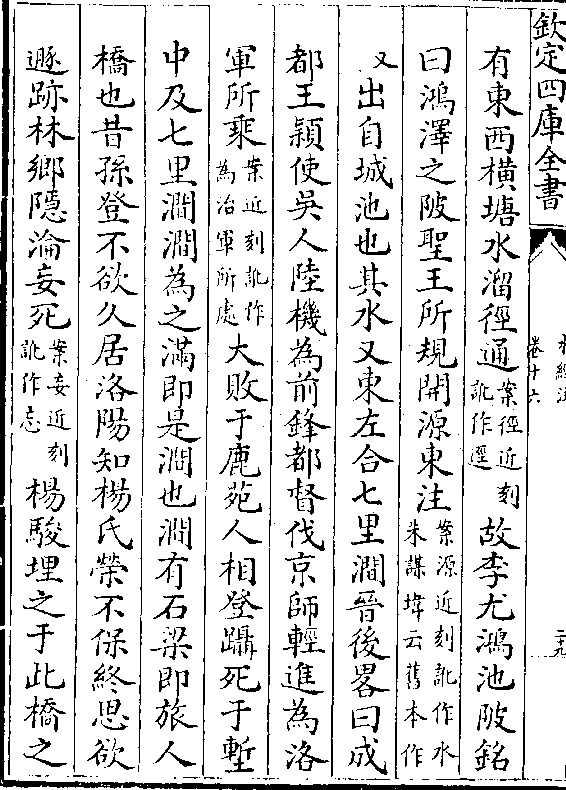 欽定四庫全書
水經注
卷十六
二十九
有東西橫塘水溜徑通案徑近刻訛作逕故李尤鴻池陂銘
曰鴻澤之陂聖王所規開源東注案源近刻訛作水朱謀㙔云舊本作
又出自城池也其水又東左合七里澗晉後畧曰成
都王穎使吳人陸機為前鋒都督伐京師輕進為洛
軍所乘案近刻訛作為治軍所處大敗于鹿苑人相登躡死于塹
中及七里澗澗為之滿即是澗也澗有石梁即旅人
橋也昔孫登不欲久居洛陽知楊氏榮不保終思欲
遯跡林鄉隱淪妄死案妄近刻訛作忘楊駿埋之于此橋之